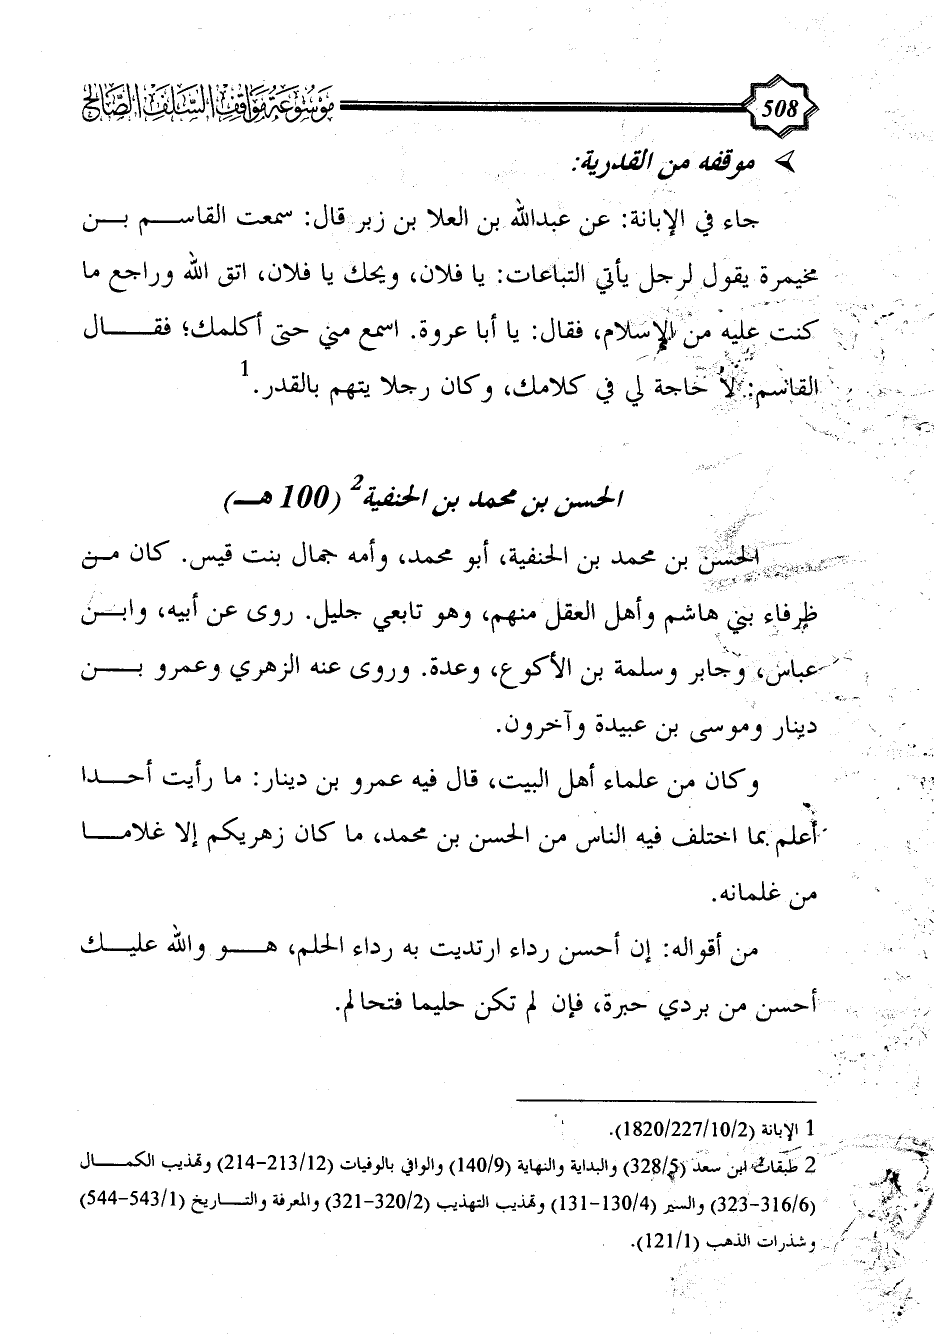 508 موسوعة مواقف السلف الصالح
موقفه من القدرية:
جاء في الإبانة: عن عبدالله بن العلا بن زبر قال: سمعت القاسم بن
مخيمرة يقول لرجل يأتي التباعات: يا فلان، ويحك يا فلان، اتق الله وراجع ما
كنت عليه من الإسلام، فقال: يا أبا عروة. اسمع مني حتى أكلمك؛ فقال
القاسم: لا حاجة لي في كلامك، وكان رجلا يتهم بالقدر.1
الحسن بن محمد بن الحنفية2 (100 هـ)
الحسن بن محمد بن الحنفية، أبو محمد، وأمه جمال بنت قيس. كان من
ظرفاء بني هاشم وأهل العقل منهم، وهو تابعي جليل. روى عن أبيه، وابن
عباس، وجابر وسلمة بن الأكوع، وعدة. وروى عنه الزهري وعمرو بن
دينار وموسى بن عبيدة وآخرون.
وكان من علماء أهل البيت، قال فيه عمرو بن دينار: ما رأيت أحدا
أعلم بما اختلف فيه الناس من الحسن بن محمد، ما كان زهريكم إلا غلاما
من غلمانه.
من أقواله: إن أحسن رداء ارتديت به رداء الحلم، هو والله عليك
أحسن من بردي حبرة، فإن لم تكن حليما فتحالم.
1 الإبانة (2/10/227/1820).
2 طبقات ابن سعد (5/328) والبداية والنهاية (9/140) والوافي بالوفيات (12/213-214) وتهذيب الكمال
(6/316-323) والسير (4/130-131) وتهذيب التهذيب (2/320-321) والمعرفة والتاريخ (1/543-544)
وشذرات الذهب (1/121).